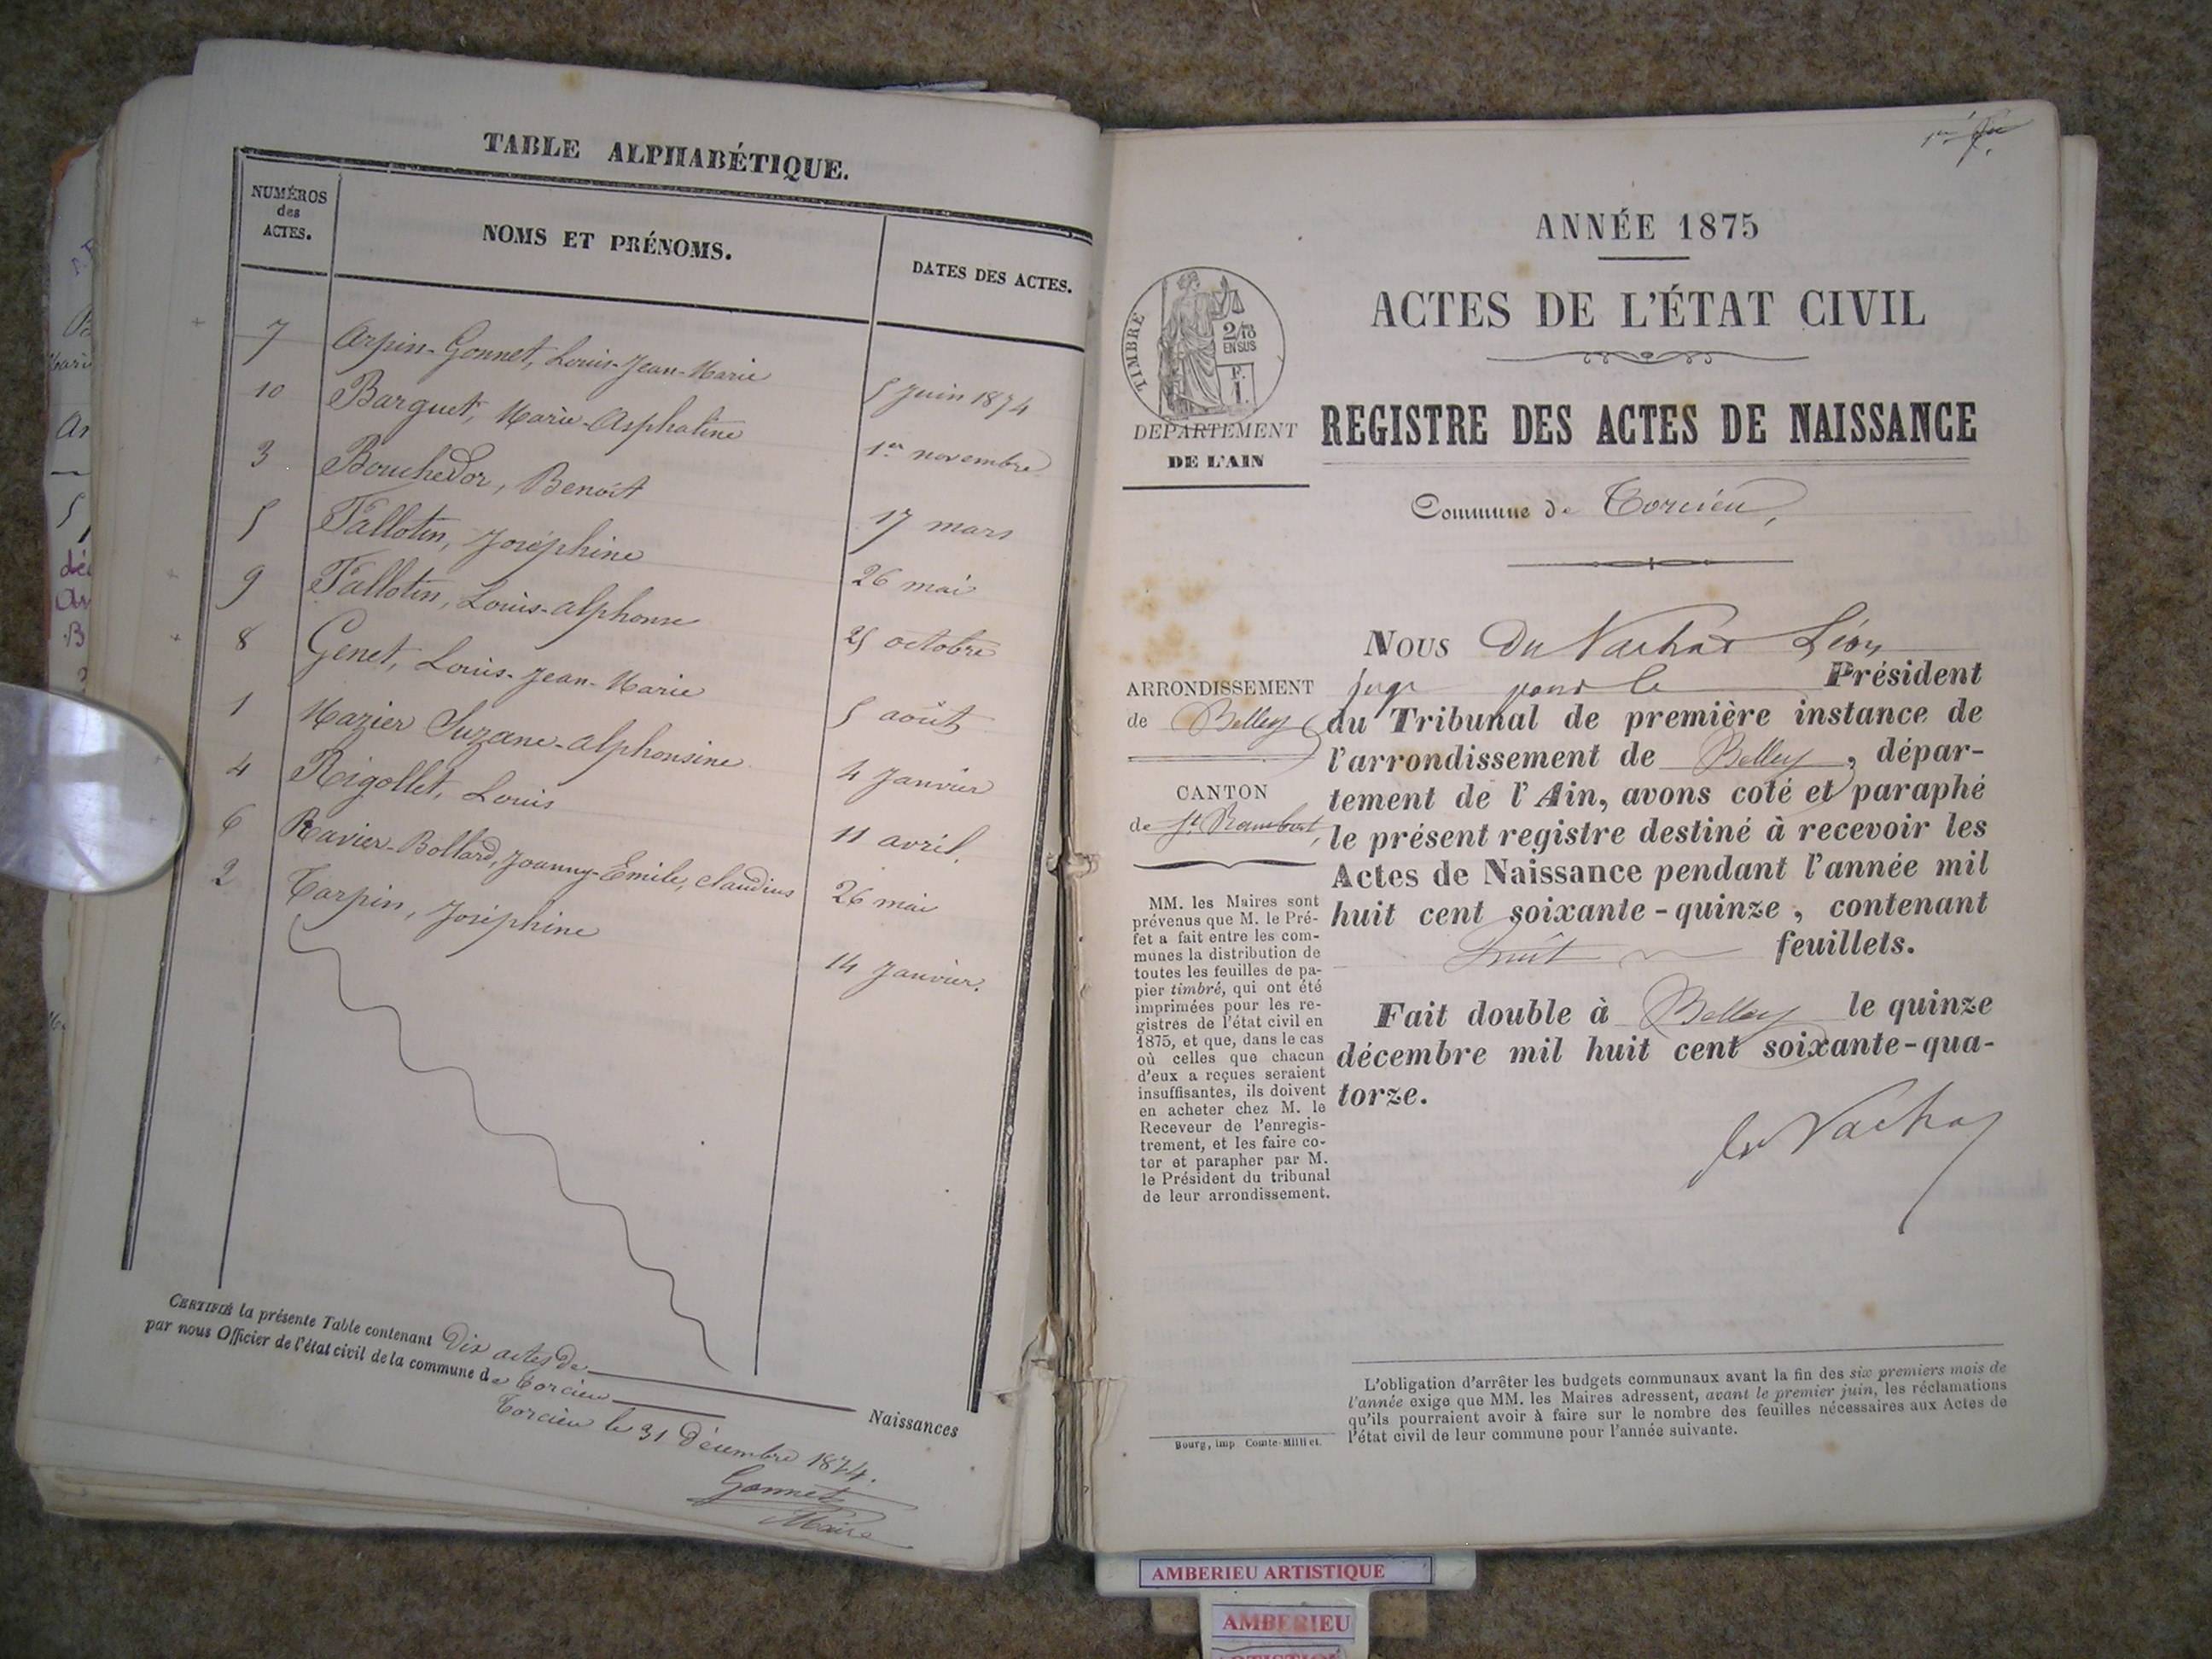 TABLE ALPHABÉTIQUE.
NUMÉROS
des
ACTES.
NOMS ET PRÉNOMS.
DATES DES ACTES.
7 Arpin-Gonnet, Louis-Jean-Marie 5 Juin 1874
10 Barguet, Marie-Asphaline 1er novembre
3 Bouchedor, Benoît 17 mars
5 Fallotin, Joséphine 26 mai
9 Fallotin, Louis-Alphonse 25 octobre
8 Genet, Louis-Jean-Marie 5 août
1 Mazier Suzane-Alphonsine 4 Janvier
4 Rigollet, Louis 11 avril.
6 Ravier-Bollard, Joanny-Emile, Claudius 26 mai
2 Tarpin, Joséphine 14 Janvier.
CERTIFIÉ la présente Table contenant Dix actes de Naissances
par nous Officier de l'état civil de la commune de Torcieu
Torcieu le 31 Décembre 1874.
Gonnet
Maire
ANNÉE 1875
ACTES DE L'ÉTAT CIVIL
TIMBRE
2/10
EN SUS
F.
1.
DÉPARTEMENT
DE L'AIN
REGISTRE DES ACTES DE NAISSANCE
Commune de Torcieu,
ARRONDISSEMENT
de Belley
CANTON
de St Rambert,
MM. les Maires sont
prévenus que M. le Pré-
fet a fait entre les com-
munes la distribution de
toutes les feuilles de pa-
pier timbré, qui ont été
imprimées pour les re-
gistres de l'état civil en
1875, et que, dans le cas
où celles que chacun
d'eux a reçues seraient
insuffisantes, ils doivent
en acheter chez M. le
Receveur de l'enregis-
trement, et les faire co-
ter et parapher par M.
le Président du tribunal
de leur arrondissement.
NOUS Du Vachat Léon
juge pour le Président
du Tribunal de première instance de
l'arrondissement de Belley, dépar-
tement de l'Ain, avons coté et paraphé
le présent registre destiné à recevoir les
Actes de Naissance pendant l'année mil
huit cent soixante-quinze, contenant
huit feuillets.
Fait double à Belley le quinze
décembre mil huit cent soixante-qua-
torze.
du Vachat
Bourg, imp Comte-Milliet.
L'obligation d'arrêter les budgets communaux avant la fin des six premiers mois de
l'année exige que MM. les Maires adressent, avant le premier juin, les réclamations
qu'ils pourraient avoir à faire sur le nombre des feuilles nécessaires aux Actes de
l'état civil de leur commune pour l'année suivante.
AMBERIEU ARTISTIQUE
AMBERIEU
ARTISTIQUE